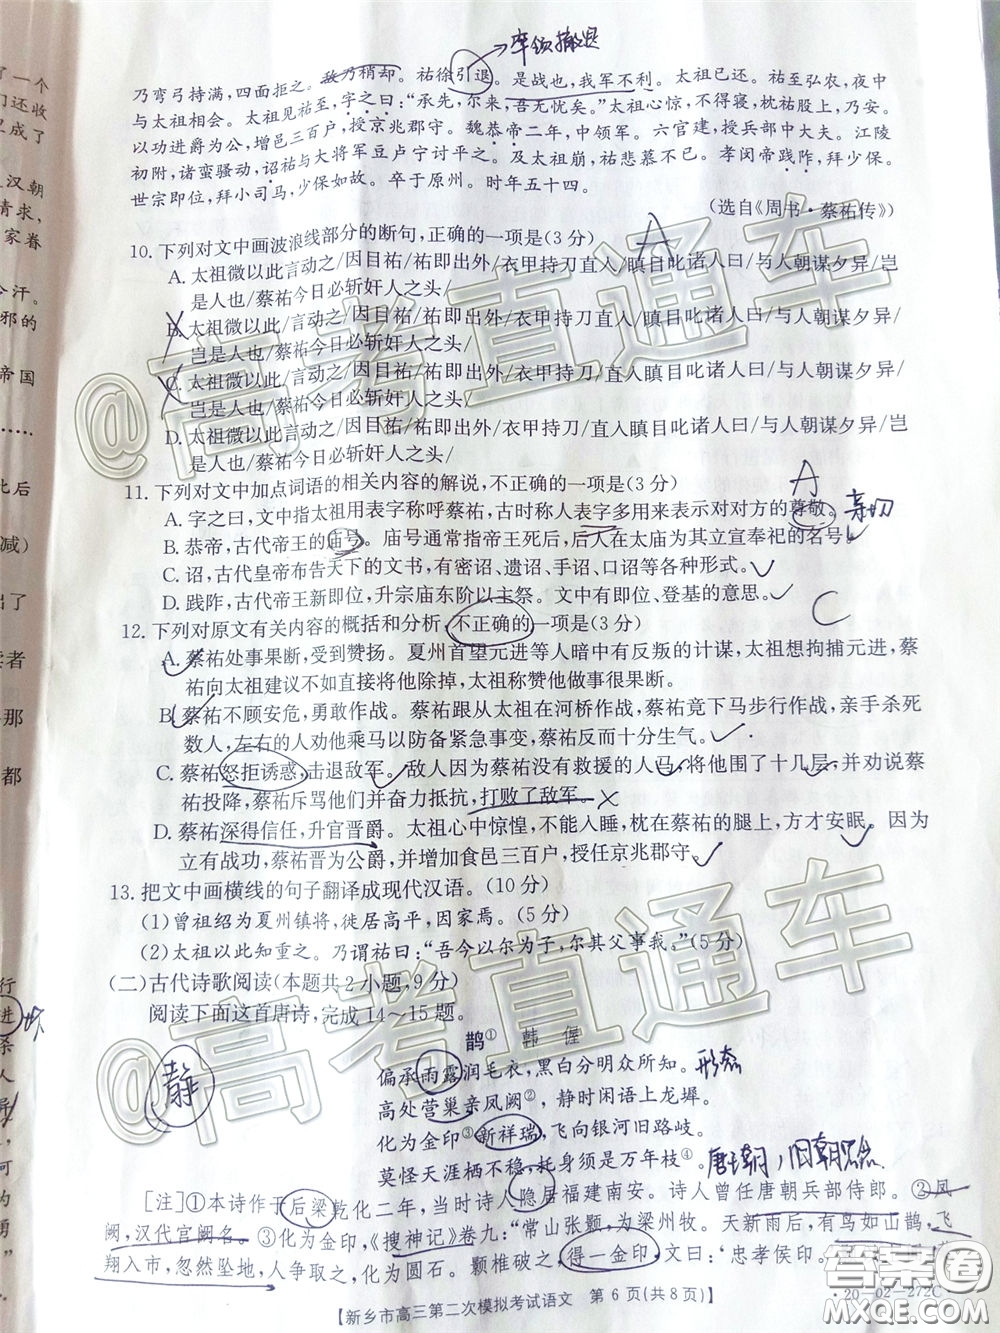 率领撤退
乃弯弓持满，四面拒之。敌乃稍却。祐徐引退。是战也，我军不利。太祖已还。祐至弘农，夜中
与太祖相会。太祖见祐至，字之曰：“承先，尔来，吾无忧矣。”太祖心惊，不得寝，枕祐股上，乃安。
以功进爵为公，增邑三百户，授京兆郡守。魏恭帝二年，中领军。六官建，授兵部中大夫。江陵
初附，诸蛮骚动，诏祐与大将军豆卢宁讨平之。及太祖崩，祐悲慕不已。孝闵帝践阼，拜少保。
世宗即位，拜小司马，少保如故。卒于原州。时年五十四。
(选自《周书·蔡祐传》)
10. 下列对文中画波浪线部分的断句，正确的一项是(3 分) A
A. 太祖微以此言动之/因目祐/祐即出外/衣甲持刀直入/瞋目叱诸人曰/与人朝谋夕异/岂
是人也/蔡祐今日必斩奸人之头/
B. 太祖微以此/言动之/因目祐/祐即出外/衣甲持刀/直入瞋目叱诸人曰/与人朝谋夕异/
岂是人也/蔡祐今日必斩奸人之头/
C. 太祖微以此/言动之/因目祐/祐即出外/衣甲持刀直入/瞋目叱诸人曰/与人朝谋夕异/
岂是人也/蔡祐今日必斩奸人之头/
D. 太祖微以此言动之/因目祐/祐即出外/衣甲持刀/直入瞋目叱诸人曰/与人朝谋夕异/岂
是人也/蔡祐今日必斩奸人之头/
11. 下列对文中加点词语的相关内容的解说，不正确的一项是(3 分) A
A. 字之曰，文中指太祖用表字称呼蔡祐，古时称人表字多用来表示对对方的尊敬。 亲切
B. 恭帝，古代帝王的庙号。庙号通常指帝王死后，后人在太庙为其立宣奉祀的名号。
C. 诏，古代皇帝布告天下的文书，有密诏、遗诏、手诏、口诏等各种形式。
D. 践阼，古代帝王新即位，升宗庙东阶以主祭。文中有即位、登基的意思。
12. 下列对原文有关内容的概括和分析，不正确的一项是(3 分) C
A. 蔡祐处事果断，受到赞扬。夏州首望元进等人暗中有反叛的计谋，太祖想拘捕元进，蔡
祐向太祖建议不如直接将他除掉，太祖称赞他做事很果断。
B. 蔡祐不顾安危，勇敢作战。蔡祐跟从太祖在河桥作战，蔡祐竟下马步行作战，亲手杀死
数人，左右的人劝他乘马以防备紧急事变，蔡祐反而十分生气。
C. 蔡祐怒拒诱惑，击退敌军。敌人因为蔡祐没有救援的人马，将他围了十几层，并劝说蔡
祐投降，蔡祐斥骂他们并奋力抵抗，打败了敌军。
D. 蔡祐深得信任，升官晋爵。太祖心中惊惶，不能入睡，枕在蔡祐的腿上，方才安眠。因为
立有战功，蔡祐晋为公爵，并增加食邑三百户，授任京兆郡守。
13. 把文中画横线的句子翻译成现代汉语。(10 分)
(1)曾祖绍为夏州镇将，徙居高平，因家焉。(5 分)
(2)太祖以此知重之。乃谓祐曰：“吾今以尔为子，尔其父事我。”(5 分)
(二)古代诗歌阅读(本题共 2 小题，9 分)
阅读下面这首唐诗，完成 14～15 题。
鹊① 韩 偓
静
偏承雨露润毛衣，黑白分明众所知。 形态
高处营巢亲凤阙②，静时闲语上龙墀。
化为金印③新祥瑞，飞向银河旧路岐。
莫怪天涯栖不稳，托身须是万年枝④。
[注]①本诗作于后梁乾化二年，当时诗人隐居福建南安。诗人曾任唐朝兵部侍郎。②凤
阙，汉代宫阙名。③化为金印，《搜神记》卷九：“常山张颢，为梁州牧。天新雨后，有鸟如山鹊，飞
翔入市，忽然坠地，人争取之，化为圆石。颢椎破之，得一金印，文曰：‘忠孝侯印。
【新乡市高三第二次模拟考试语文 第 6 页(共 8 页)】
·20-02-272C·
@高考直通车
@高考直通车
答案圈
了一个
们还收
又成了
汉朝
请求，
家眷
汗。
邪的
帝国
……
此后
减)
出了
读者
那
都
行
进
系
人
可
为
勇